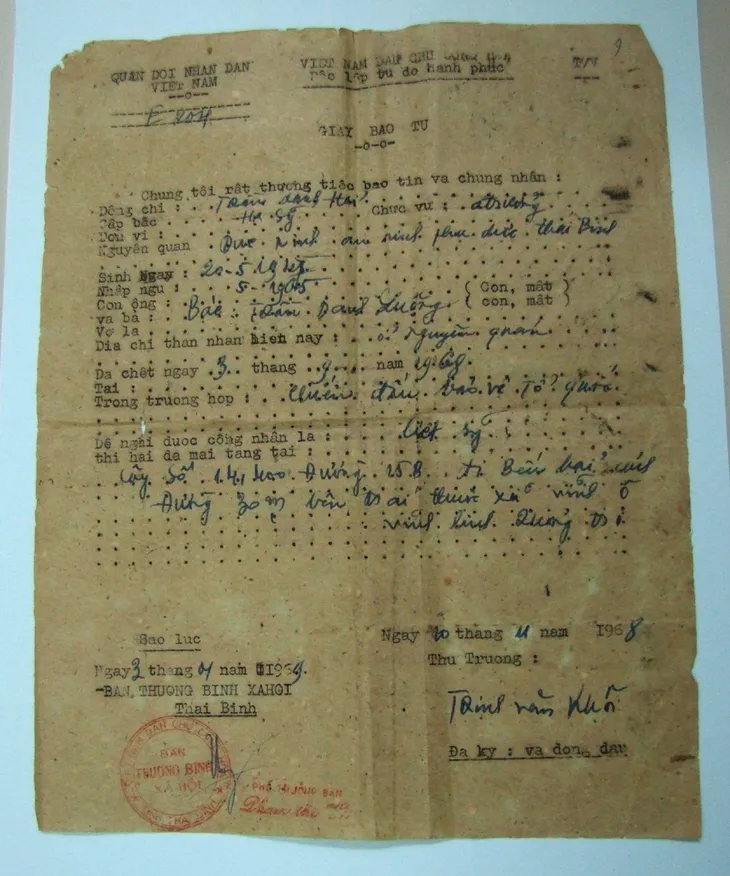 9
QUAN DOI NHAN DAN
VIET NAM
--o--
E 204
VIET NAM DAN CHU CONG HOA
Doc lap tu do hanh phuc
T/V
GIAY BAO TU
-o-o-
Chung tôi rât thương tiêc bao tin va chung nhân :
Dông chi : Trần danh Hai
Câp bâc : Hạ sỹ Chưc vu : atrưởng
Dơn vi :
Nguyên quan Đức ninh an ninh phụ dực thái Bình
Sinh Ngay : 20-5-19
Nhâp ngu : 5-1965
Con ông : Bác Trần Danh (Con, mât)
va ba : (con, mât)
Vơ la
Dia chi than nhan hien nay : ở nguyên quán
Da chêt ngay 3 thang 9 nam 1968
Tai :
Trong truong hop : chiến đấu bảo vệ tổ quốc
Dê nghi duoc công nhân la : liệt sỹ
thi hai da mai tang tai :
Cây số 141 Đường 15B từ Bến
Đường 30m bên trái thuộc xã vĩnh ô
vĩnh linh Quảng trị
Sao luc
Ngay 3 thang 01 nam 1969.
-BAN THUONG BINH XAHOI
Thai Binh
Ngay 20 thang 11 nam 1968
Thu Truong :
Trịnh văn Khôi
Da ky : va dong dau
BAN
THƯƠNG BINH
XÃ HỘI
PHÓ TRƯỞNG BAN
Phạm